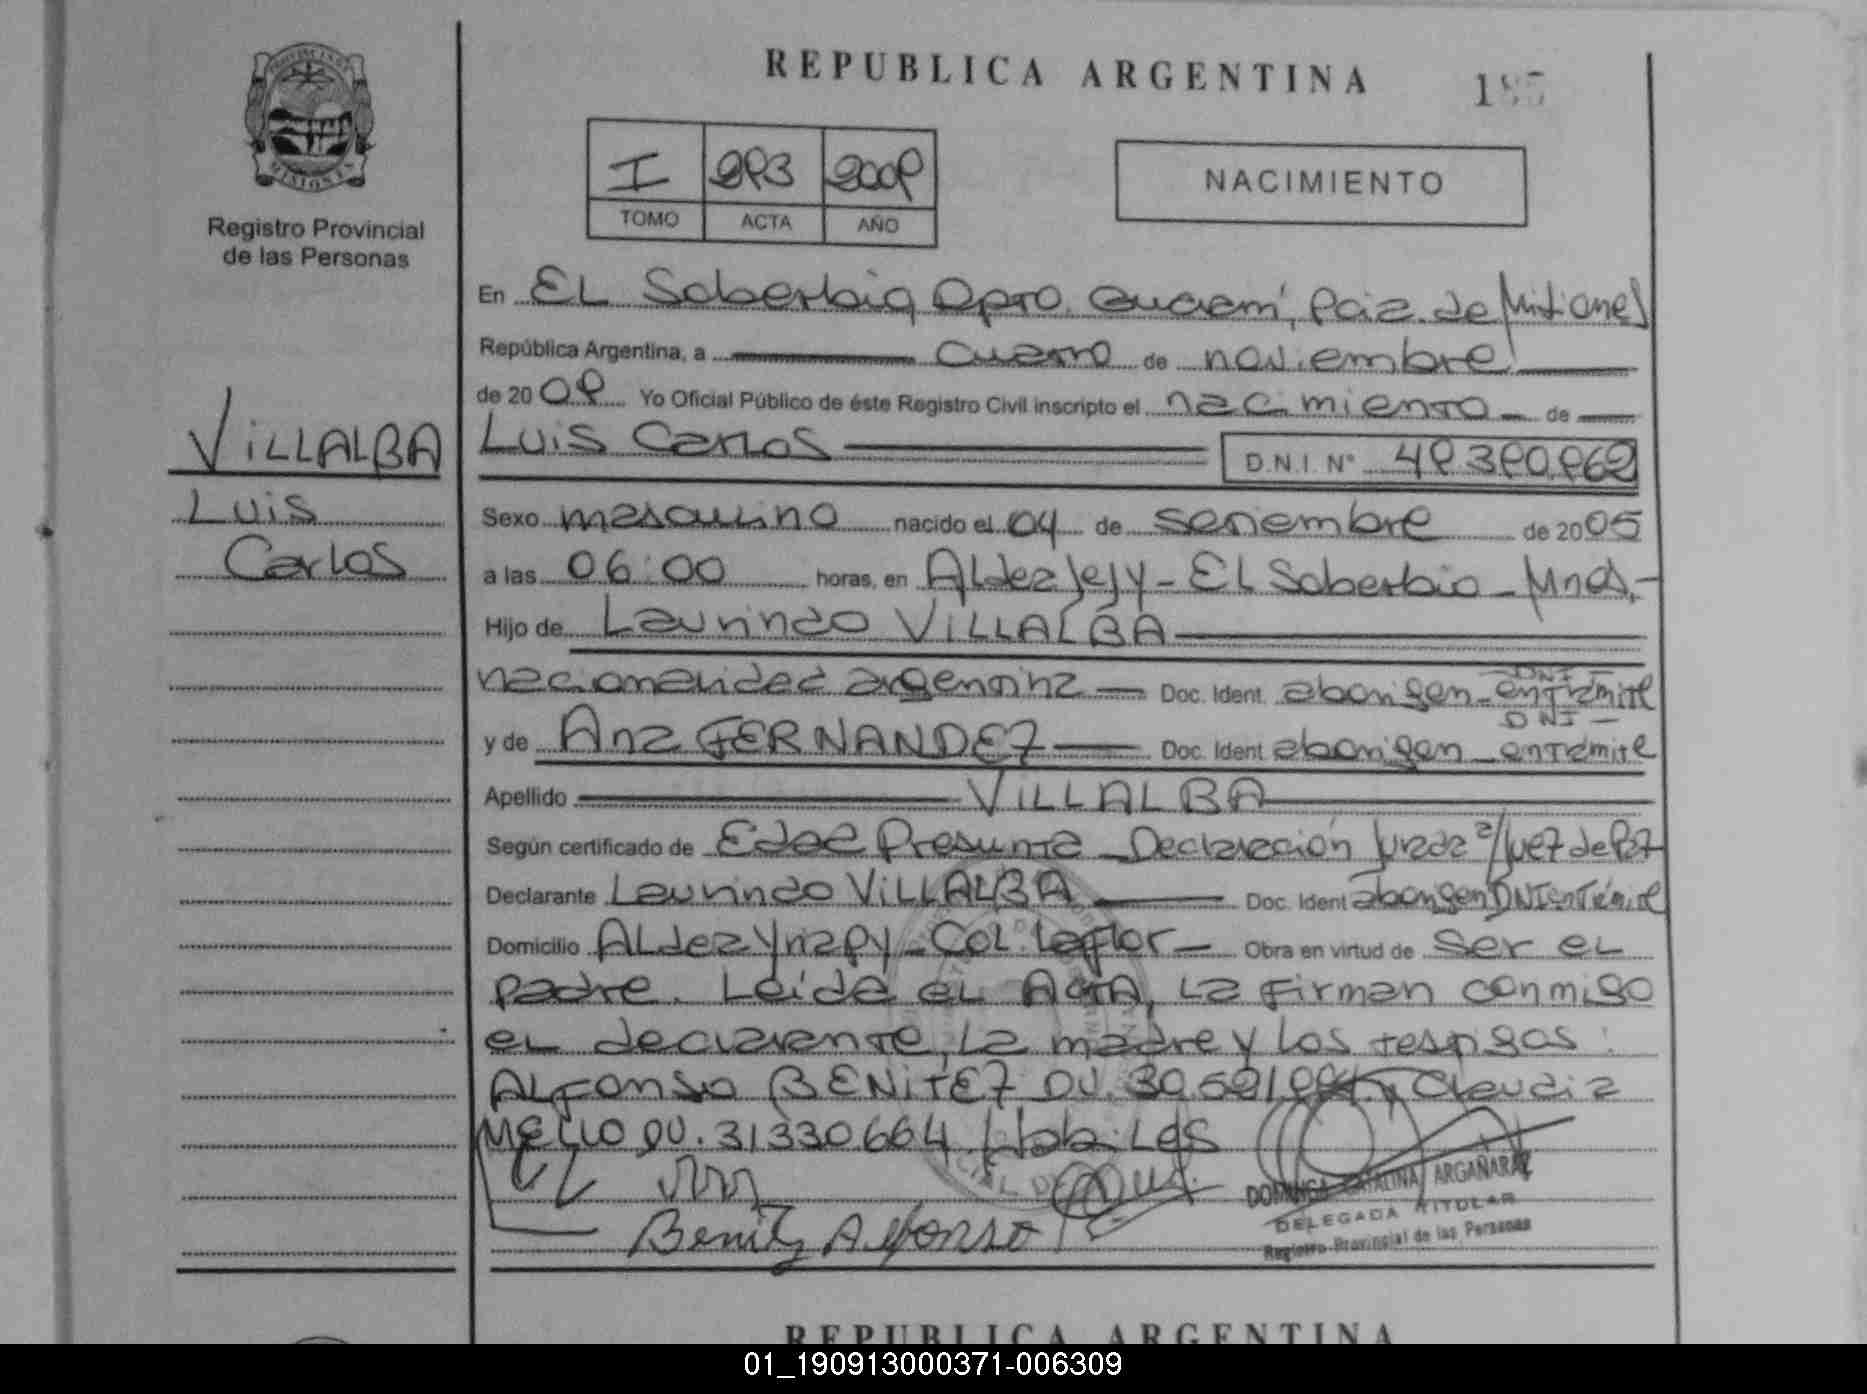 REPUBLICA ARGENTINA
PROVINCIA DE
MISIONES
Registro Provincial
de las Personas
I 293 2009
TOMO ACTA AÑO
NACIMIENTO
En EL Soberbia, Dpto. Guaraní, Pcia. de Misiones
República Argentina, a cuatro de noviembre
de 2009 Yo Oficial Público de éste Registro Civil inscripto el nacimiento de
VILLALBA
Luis
Carlos
Luis Carlos D.N.I. Nº 49.390.962
Sexo masculino nacido el 04 de setiembre de 2005
a las 06:00 horas, en Aldea Jejy - El Soberbio - Mnes.-
Hijo de Laurindo VILLALBA
nacionalidad argentina Doc. Ident. aborigen - DNI - en trámite
y de Ana FERNANDEZ Doc. Ident aborigen DNI - en trámite
Apellido VILLALBA
Según certificado de Edad Presunta - Declaración Jurada a/Juez de Paz
Declarante Laurindo VILLALBA Doc. Ident aborigen DNI en Trámite
Domicilio Aldea Yriapy - Col. La Flor - Obra en virtud de ser el
padre. Leída el Acta, la firman conmigo
el declarante, la madre y los testigos:
Alfonso BENITEZ DU. Claudia
MELLO DU. 31330664. Hábiles
Benitez Alfonso
DOMINGA CATALINA ARGAÑARAZ
DELEGADA TITULAR
Registro Provincial de las Personas
REPUBLICA ARGENTINA
01_190913000371-006309